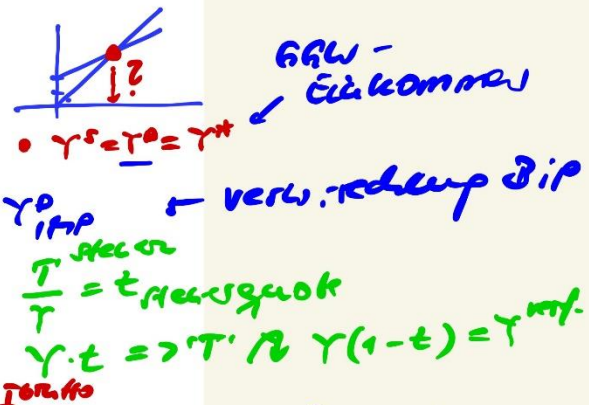 ?
GGW -
Einkommen
• Y^S = Y^D = Y^*
Y^D_imp ← verw.rechnung Bip
Steuern
T/Y = t Steuerquote
Y·t => 'T' Y(1-t) = Y^verf.